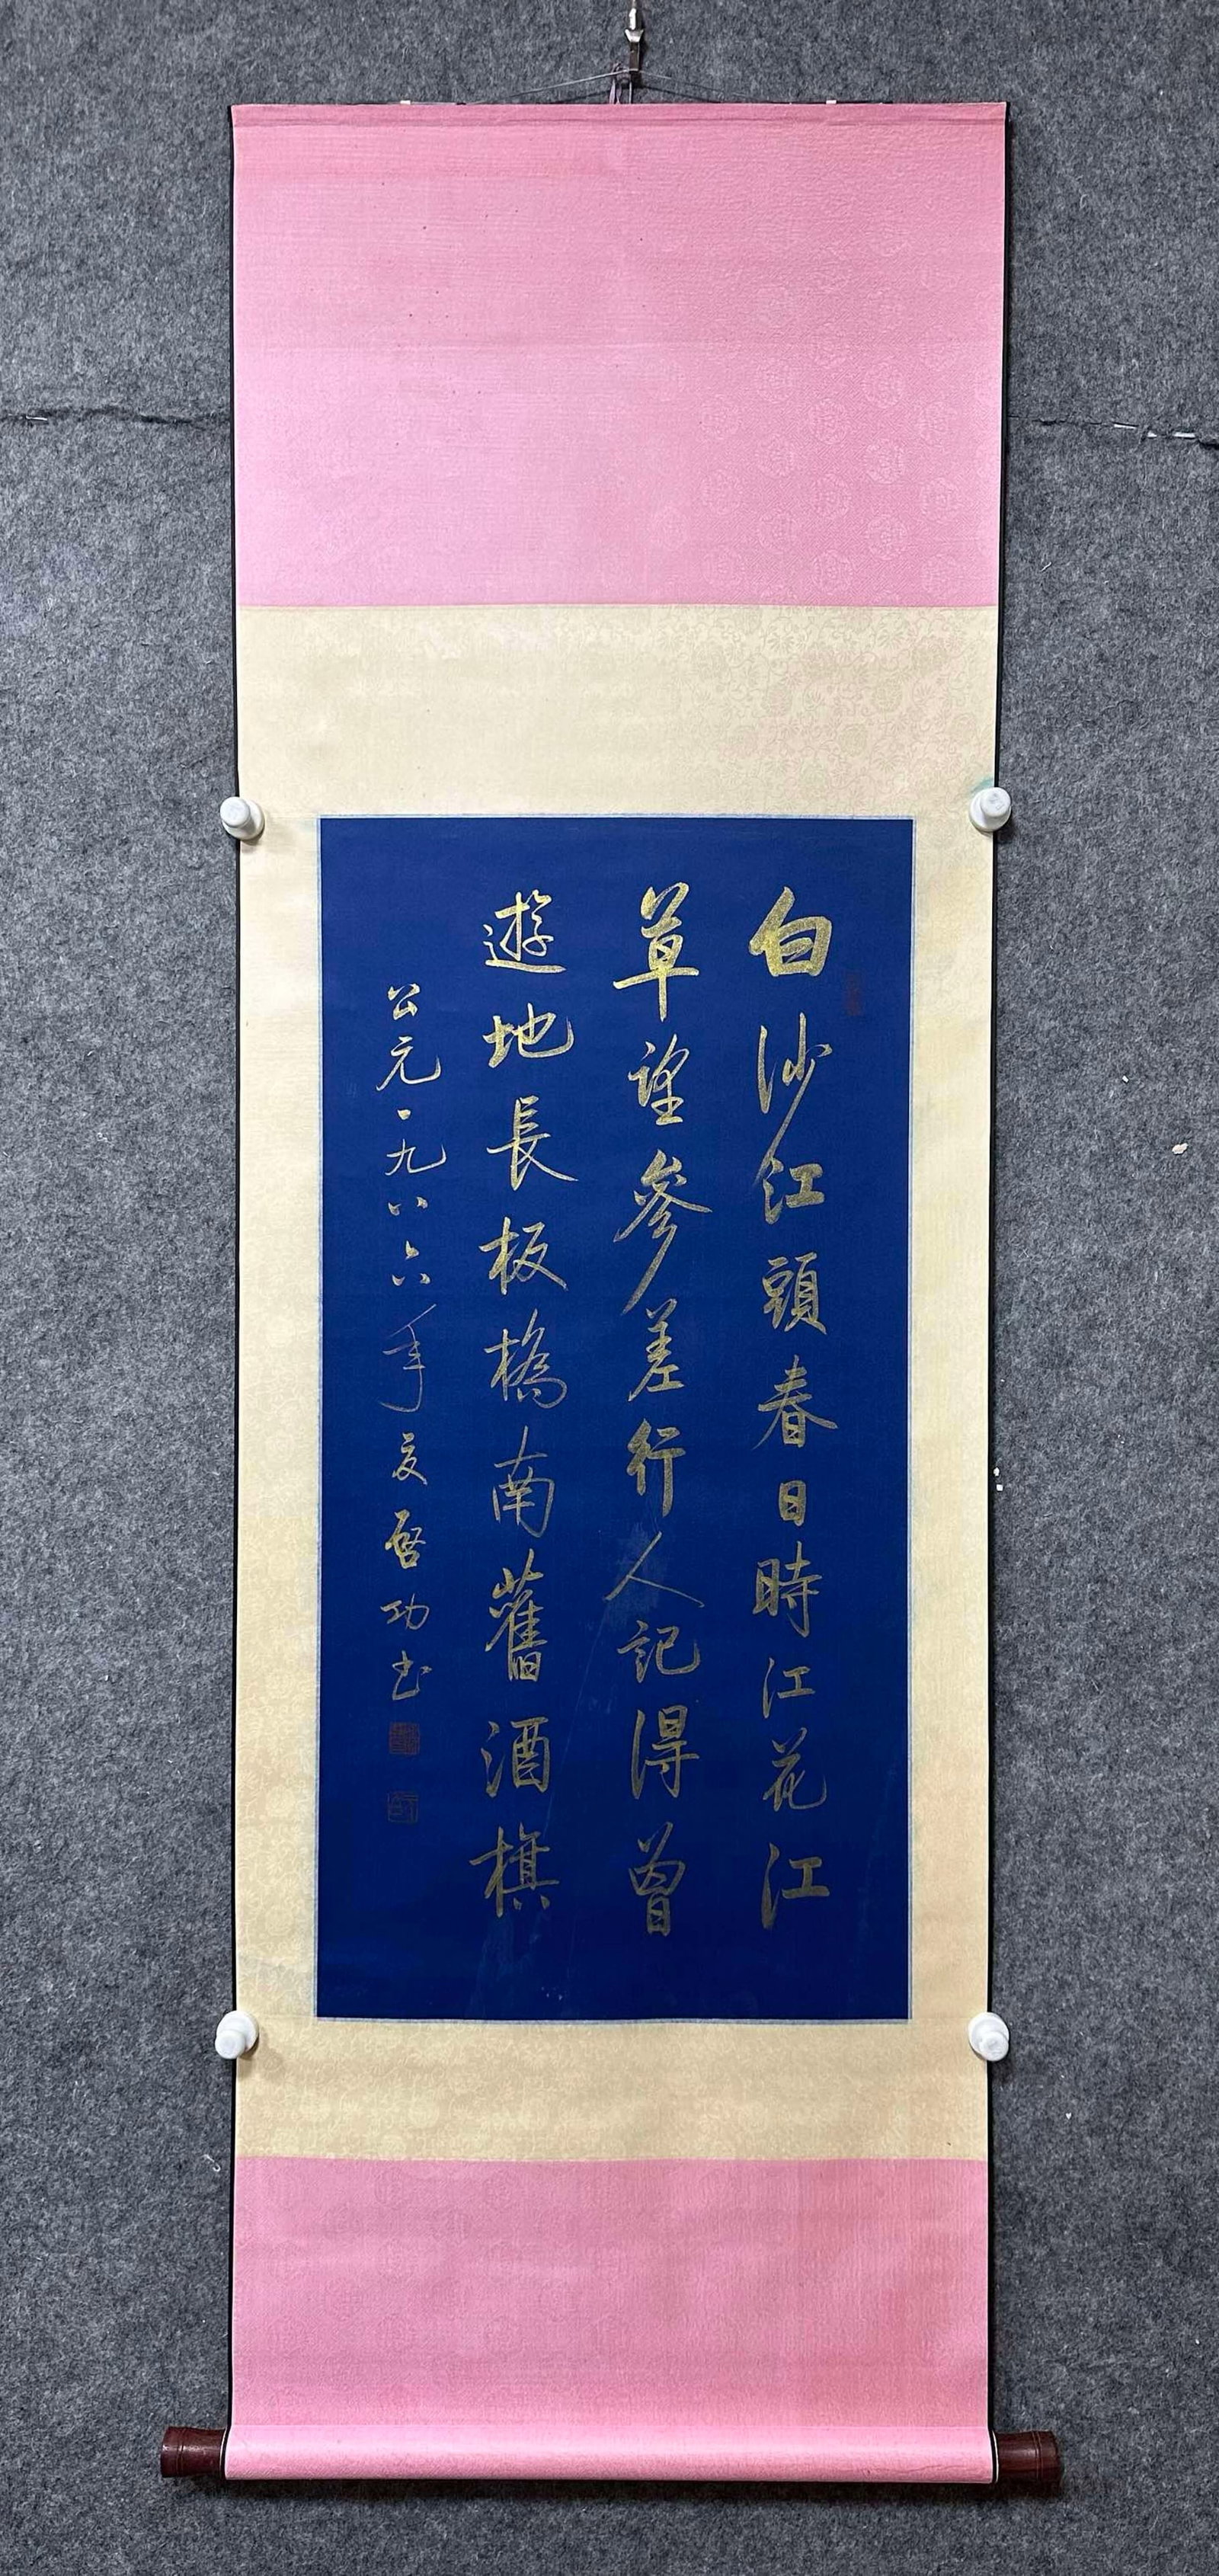 白沙江頭春日時江花江
草望參差行人記得曾
遊地長板橋南舊酒旗
公元一九八六年夏啓功書